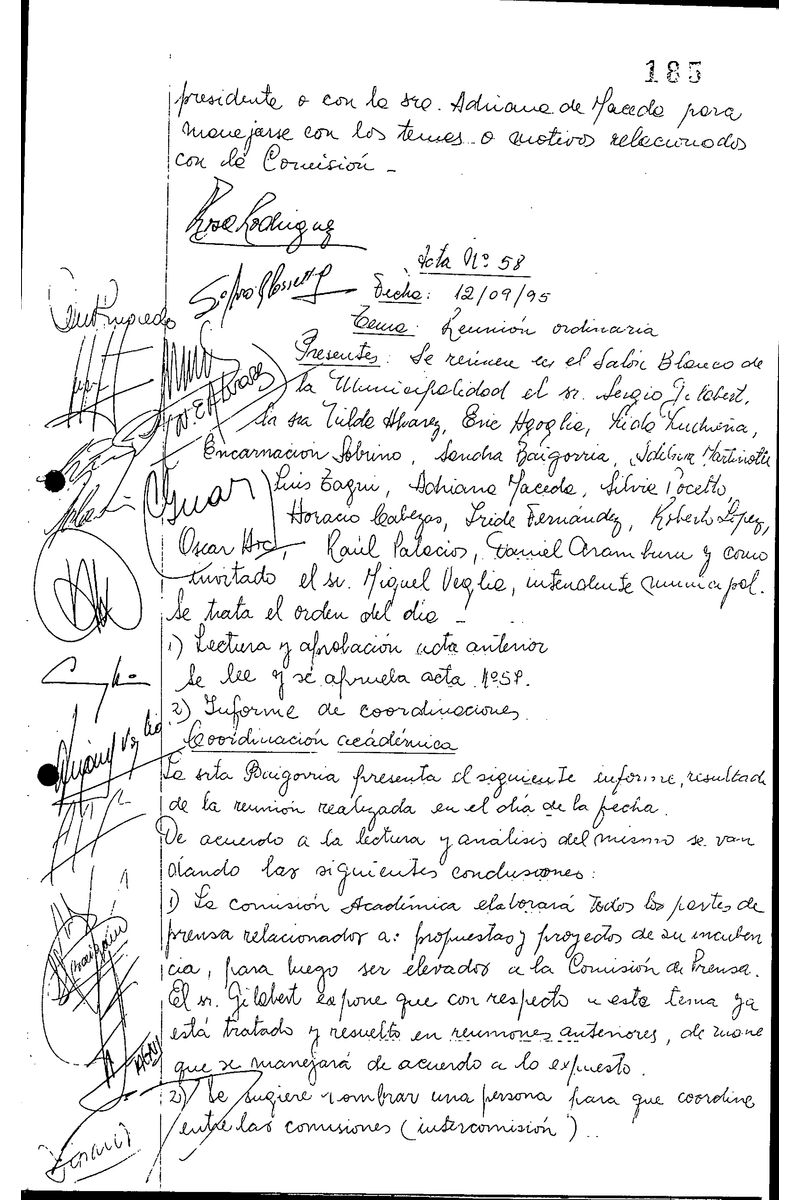 185
presidente o con la sra. Adriana de Maceda para
manejarse con los temas o motivos relacionados
con la Comisión -
Rosa Rodriguez
Acta Nº 58
Fecha: 12/09/95
Tema: Reunión ordinaria
Presentes: Se reúnen en el Salón Blanco de
la Municipalidad el sr. Sergio Gilabert,
la sra Tilda Alvarez, Eric Agoglia,
Encarnacion Sobrino, Sandra Baigorria, Martinotti
Luis Zagui, Adriana Maceda, Silvia Pocetto,
Horacio Cabezas, Iride Fernández, Roberto López,
Oscar Arc, Raúl Palacios, Daniel Aramburu y como
invitado el sr. Miguel Veglia, intendente municipal.
Se trata el orden del día -
1) Lectura y aprobación acta anterior
Se lee y se aprueba acta Nº57.
2) Informe de coordinaciones
Coordinación académica
La srta Baigorria presenta el siguiente informe, resultado
de la reunión realizada en el día de la fecha.
De acuerdo a la lectura y análisis del mismo se van
dando las siguientes conclusiones:
1) La comisión Académica elaborará todos los partes de
prensa relacionados a: propuestas y proyectos de su incuben
cia, para luego ser elevados a la Comisión de Prensa.
El sr. Gilabert expone que con respecto a este tema ya
está tratado y resuelto en reuniones anteriores, de mane
que se manejará de acuerdo a lo expuesto.
2) Se sugiere nombrar una persona para que coordine
entre las comisiones (intercomisión)..